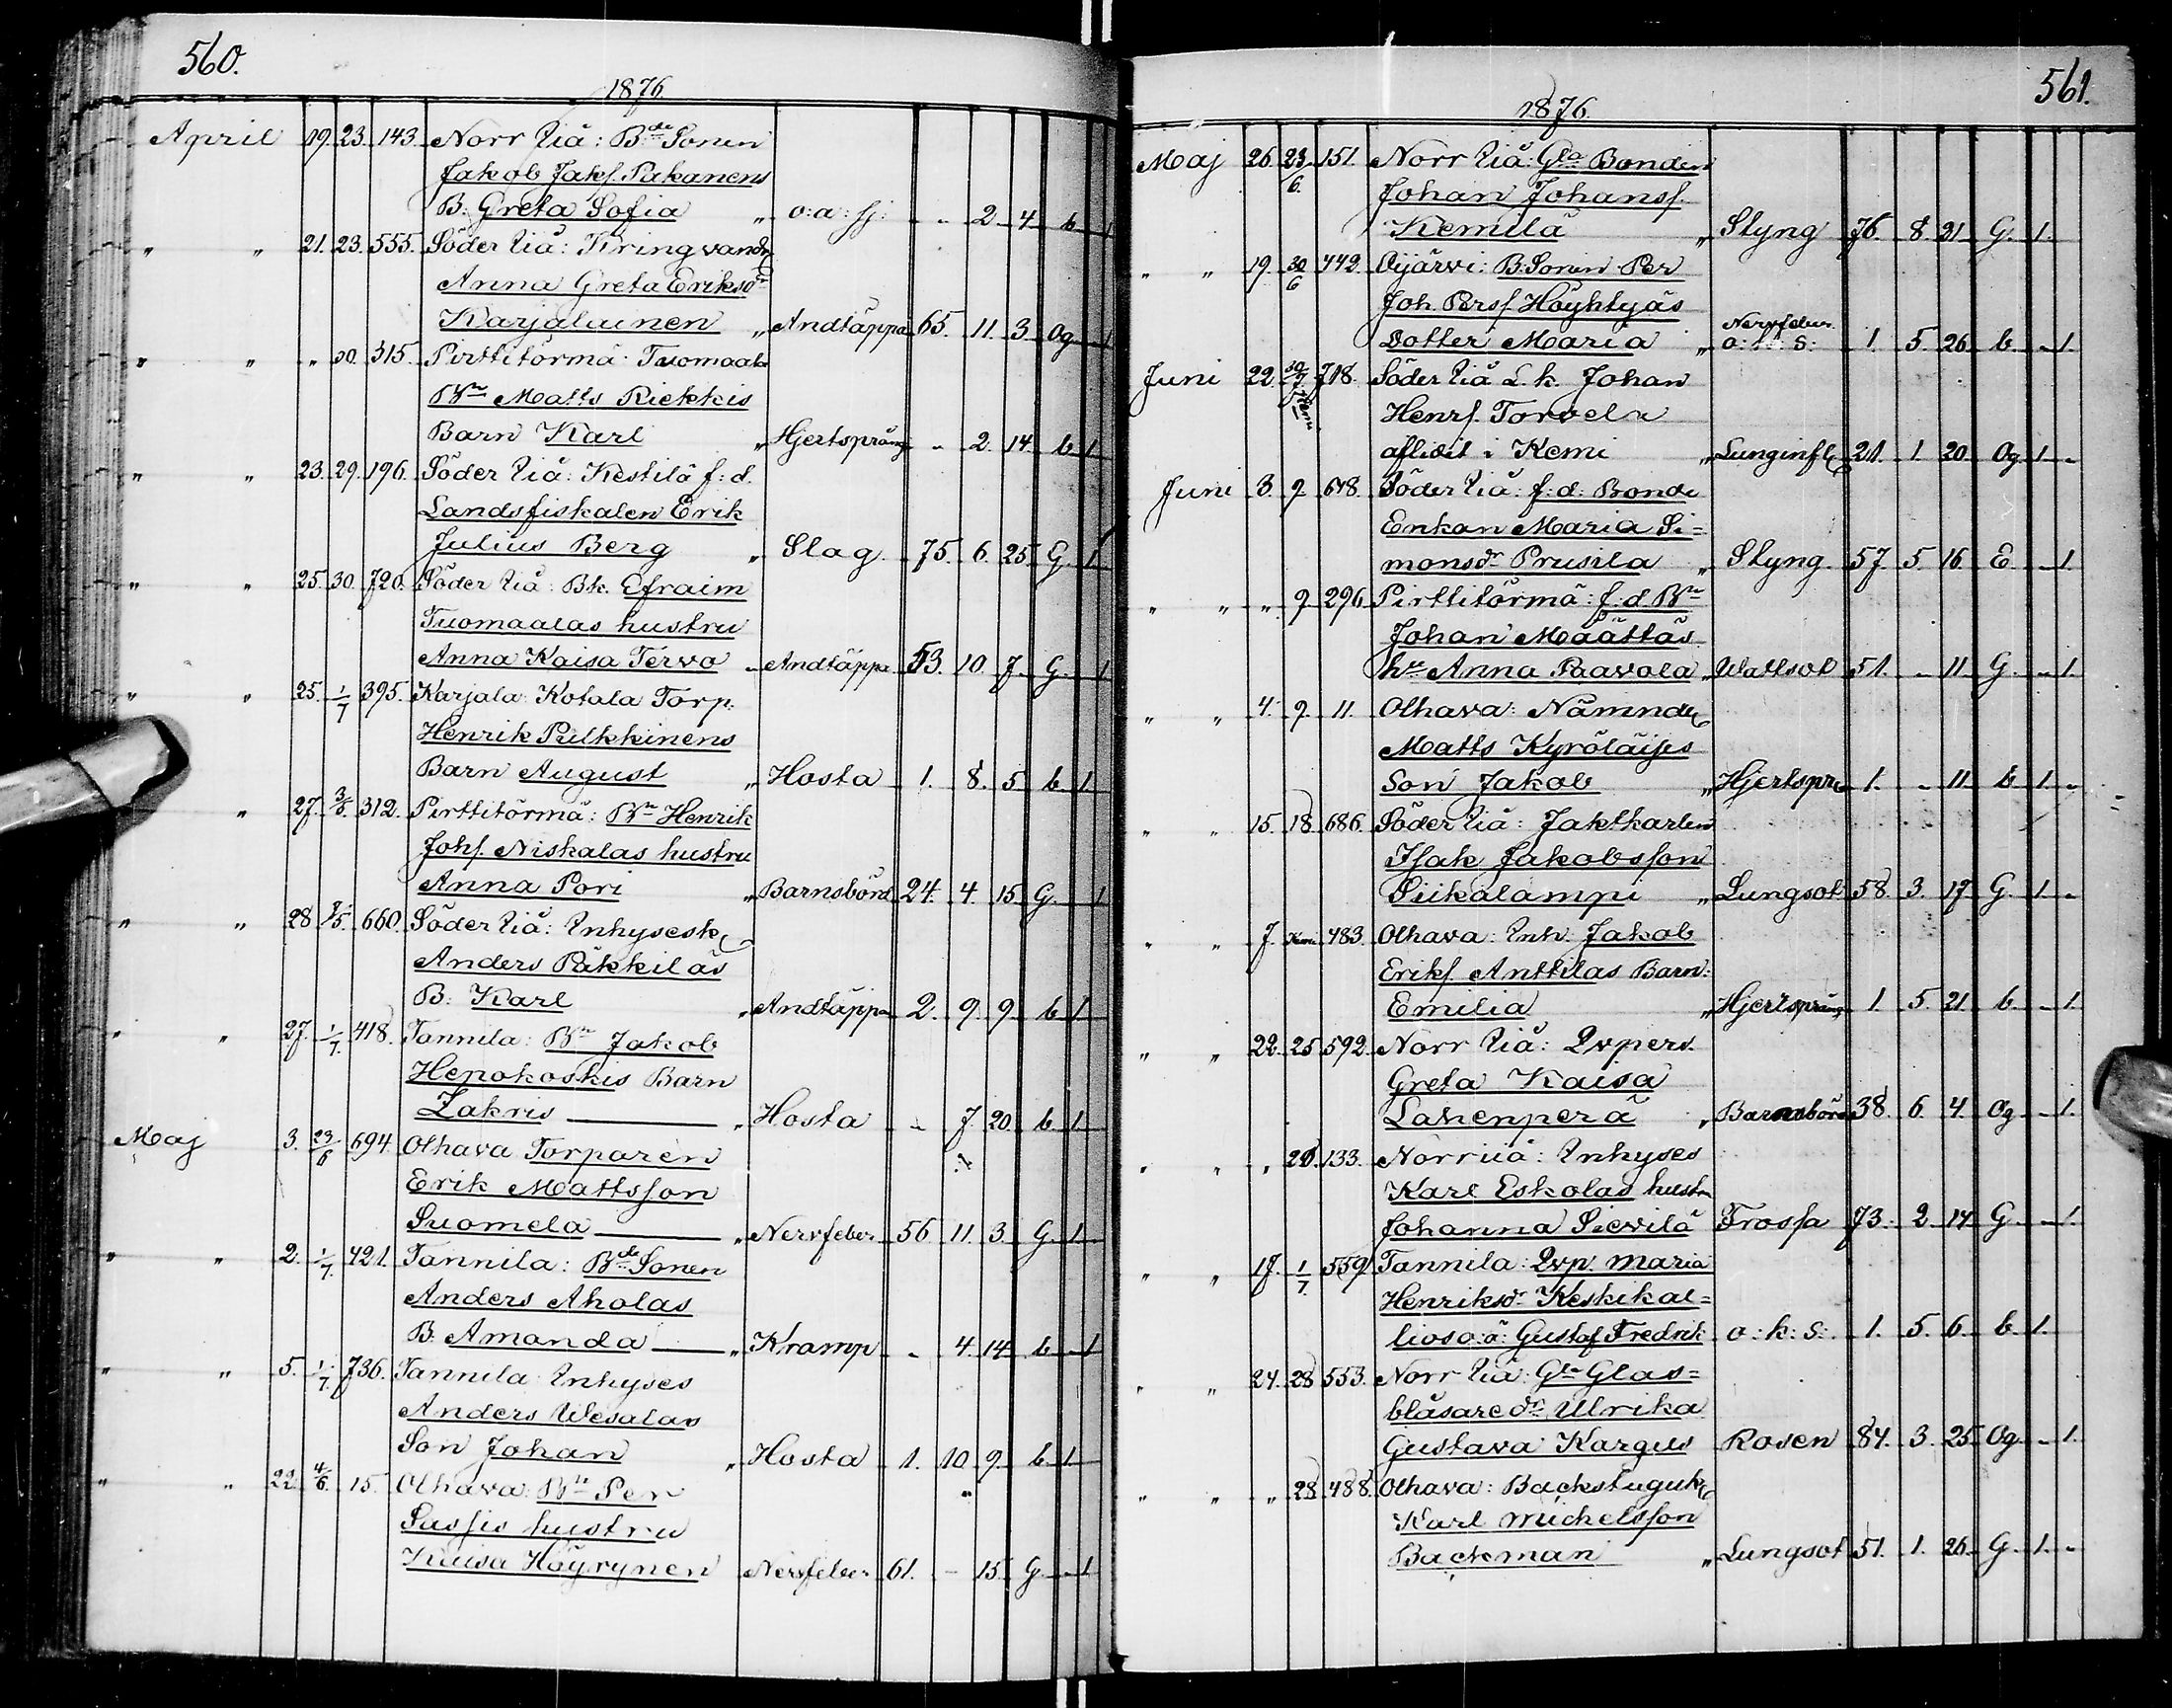 560.
1876.
April 19. 23. 143. Norr Iiå: B:de Sonen
Jakob Jaks. Pakanens
B: Greta Sofia „ o: a: sj: - „ 2 4 b 1
„ „ 21. 23. 555. Söder Iiå: Kringvandr
Anna Greta Eriksdr
Karjalainen „ Andtäppa 65. 11. 3 Og 1
„ „ „ 30. 315. Pirttitörmä: Tuomaala
Bn Matts Riekkis
Barn Karl „ Hjertspräng - „ 2 14. b 1
„ „ 23. 29. 196. Söder Iiå: Kestilä f: d.
Landsfiskalen Erik
Julius Berg „ Slag 75. 6. 25 G. 1
„ „ 25. 30. 720. Söder Iiå: Bk. Efraim
Tuomaalas hustru
Anna Kaisa Tervo „ Andtäppa 53. 10. 7 G. 1
„ „ 25. 1/7 395. Karjala: Kotala Torp.
Henrik Pulkkinens
Barn August „ Hosta 1. 8. 5 b 1
„ 27. 3/5. 312. Pirttitörmä: Bn Henrik
Johs. Niskalas hustru
Anna Pori „ Barnsbörd 24. 4. 15 G. 1
„ „ 28 /5. 660. Söder Iiå: Inhysesk
Anders Päkkiläs
B: Karl „ Andtäppa 2. 9. 9. b 1.
„ „ 27. 1/7. 418. Tannila: Bn Jakob
Hepokoskis Barn
Zakris „ Hosta - 7 20 b 1.
Maj 3. 23/6 694. Olhava Torparen
Erik Mattsson
Suomela „ Nervfeber 56. 11. 3. G. 1
„ „ 2. 1/7. 421. Tannila: Bde Sonen
Anders Aholas
B. Amanda „ Kramp „ 4. 14 b 1
„ „ 5. 1/7. 736. Tannila Inhyses
Anders Wesalas
Son Johan „ Hosta 1. 10 9. b. 1.
„ „ 22. 4/6. 15. Olhava: Bn Per
Sassis hustru
Kaisa Höyrynen Nervfeber 61. - 15. G. 1
561.
1876.
Maj 26. 23/6. 151. Norr Iiå: Gla Bonden
Johan Johanss.
Kemilä „ Styng 76. 8. 31 G. 1.
„ „ 19. 30/6 442. Oijärvi: B:Sonen Per
Joh. Perss. Höyhtyäs
Dotter Maria „ Nervfeber o: k: s: 1. 5. 26 b. 1.
Juni 22. 30/7 Kemi 718. Söder Iiå L. k. Johan
Henrs. Torvela
aflidit i Kemi „ Lunginfl 21. 1. 20. Og 1.
Juni 3. 9. 648. Söder Iiå: f: d: Bonde
Enkan Maria Si=
monsdr Prusila „ Styng. 57 5. 16. E. 1.
„ „ „ 9. 296. Pirttitörmä: f: d Bn
Johan Määttäs
hu Anna Paavola „ Wattsot 51. - 11. G. 1.
„ „ 4. 9. 11. Olhava: Nämnde
Matts Kyröläises
Son Jakob „ Hjertspr 1. - 11. b. 1.
„ „ 15. 18 686. Söder Iiå: Jaktkarlen
Isak Jakobsson
Siikalampi „ Lungsot 58 3. 17. G. 1.
„ „ 7. Kemi 483. Olhava: Inh: Jakob
Eriks. Anttilas Barn:
Emilia „ Hjertspräng 1. 5. 21. b. 1.
„ „ 22 25 592. Norr Iiå: Qvpers.
Greta Kaisa
Lahenperä „ Barnsbörd 38. 6. 4. Og 1.
„ „ „ 133. Norriiå: Inhyses
Karl Eskolas hustru
Johanna Sievilä Frossa 73. 2. 14. G 1.
„ „ 17. 1/7. 559 Tannila: Qvp. Maria
Henriksdr Keskikal=
lios o: ä: Gustaf Fredrik o: k: s: 1. 5. 6. b. 1.
„ „ 24. 28 553. Norr Iiå: Gla Glas=
blåsaredr Ulrika
Gustava Kargus Rosen 84. 3. 25 Og 1.
„ „ „ 28 488. Olhava: Backstuguk
Karl Michelsson
Backman „ Lungsot 51. 1. 26. G. 1.